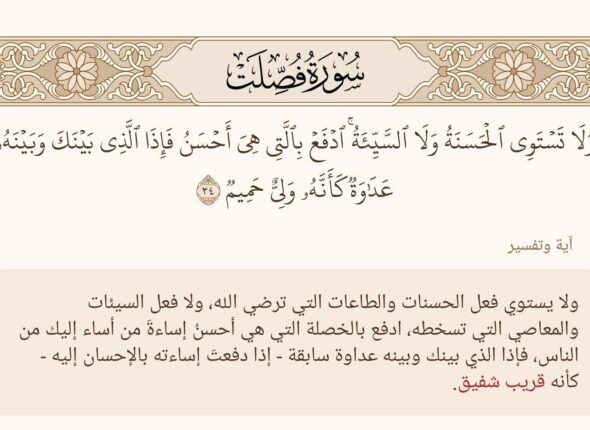 سُورَةُ فُصِّلَتْ
وَلَا تَسْتَوِى الْحَسَنَةُ وَلَا السَّيِّئَةُ ۚ ادْفَعْ بِالَّتِى هِىَ أَحْسَنُ فَإِذَا الَّذِى بَيْنَكَ وَبَيْنَهُۥ
عَدَاوَةٌ كَأَنَّهُۥ وَلِىٌّ حَمِيمٌ ٣٤
آية وتفسير
ولا يستوي فعل الحسنات والطاعات التي ترضي الله، ولا فعل السيئات
والمعاصي التي تسخطه، ادفع بالخصلة التي هي أحسنُ إساءةَ من أساء إليك من
الناس، فإذا الذي بينك وبينه عداوة سابقة - إذا دفعتَ إساءته بالإحسان إليه -
كأنه قريب شفيق.